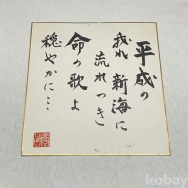 平成の
我れ新海に
流れつき
命の歌よ
穏やかに…
kobay